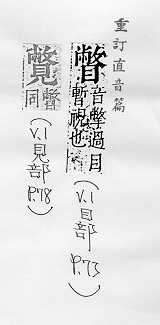 重訂直音篇
瞥 音撆過目
暫視也 (V.1目部 P.73)
覕 同瞥 (V.1見部 P.78)